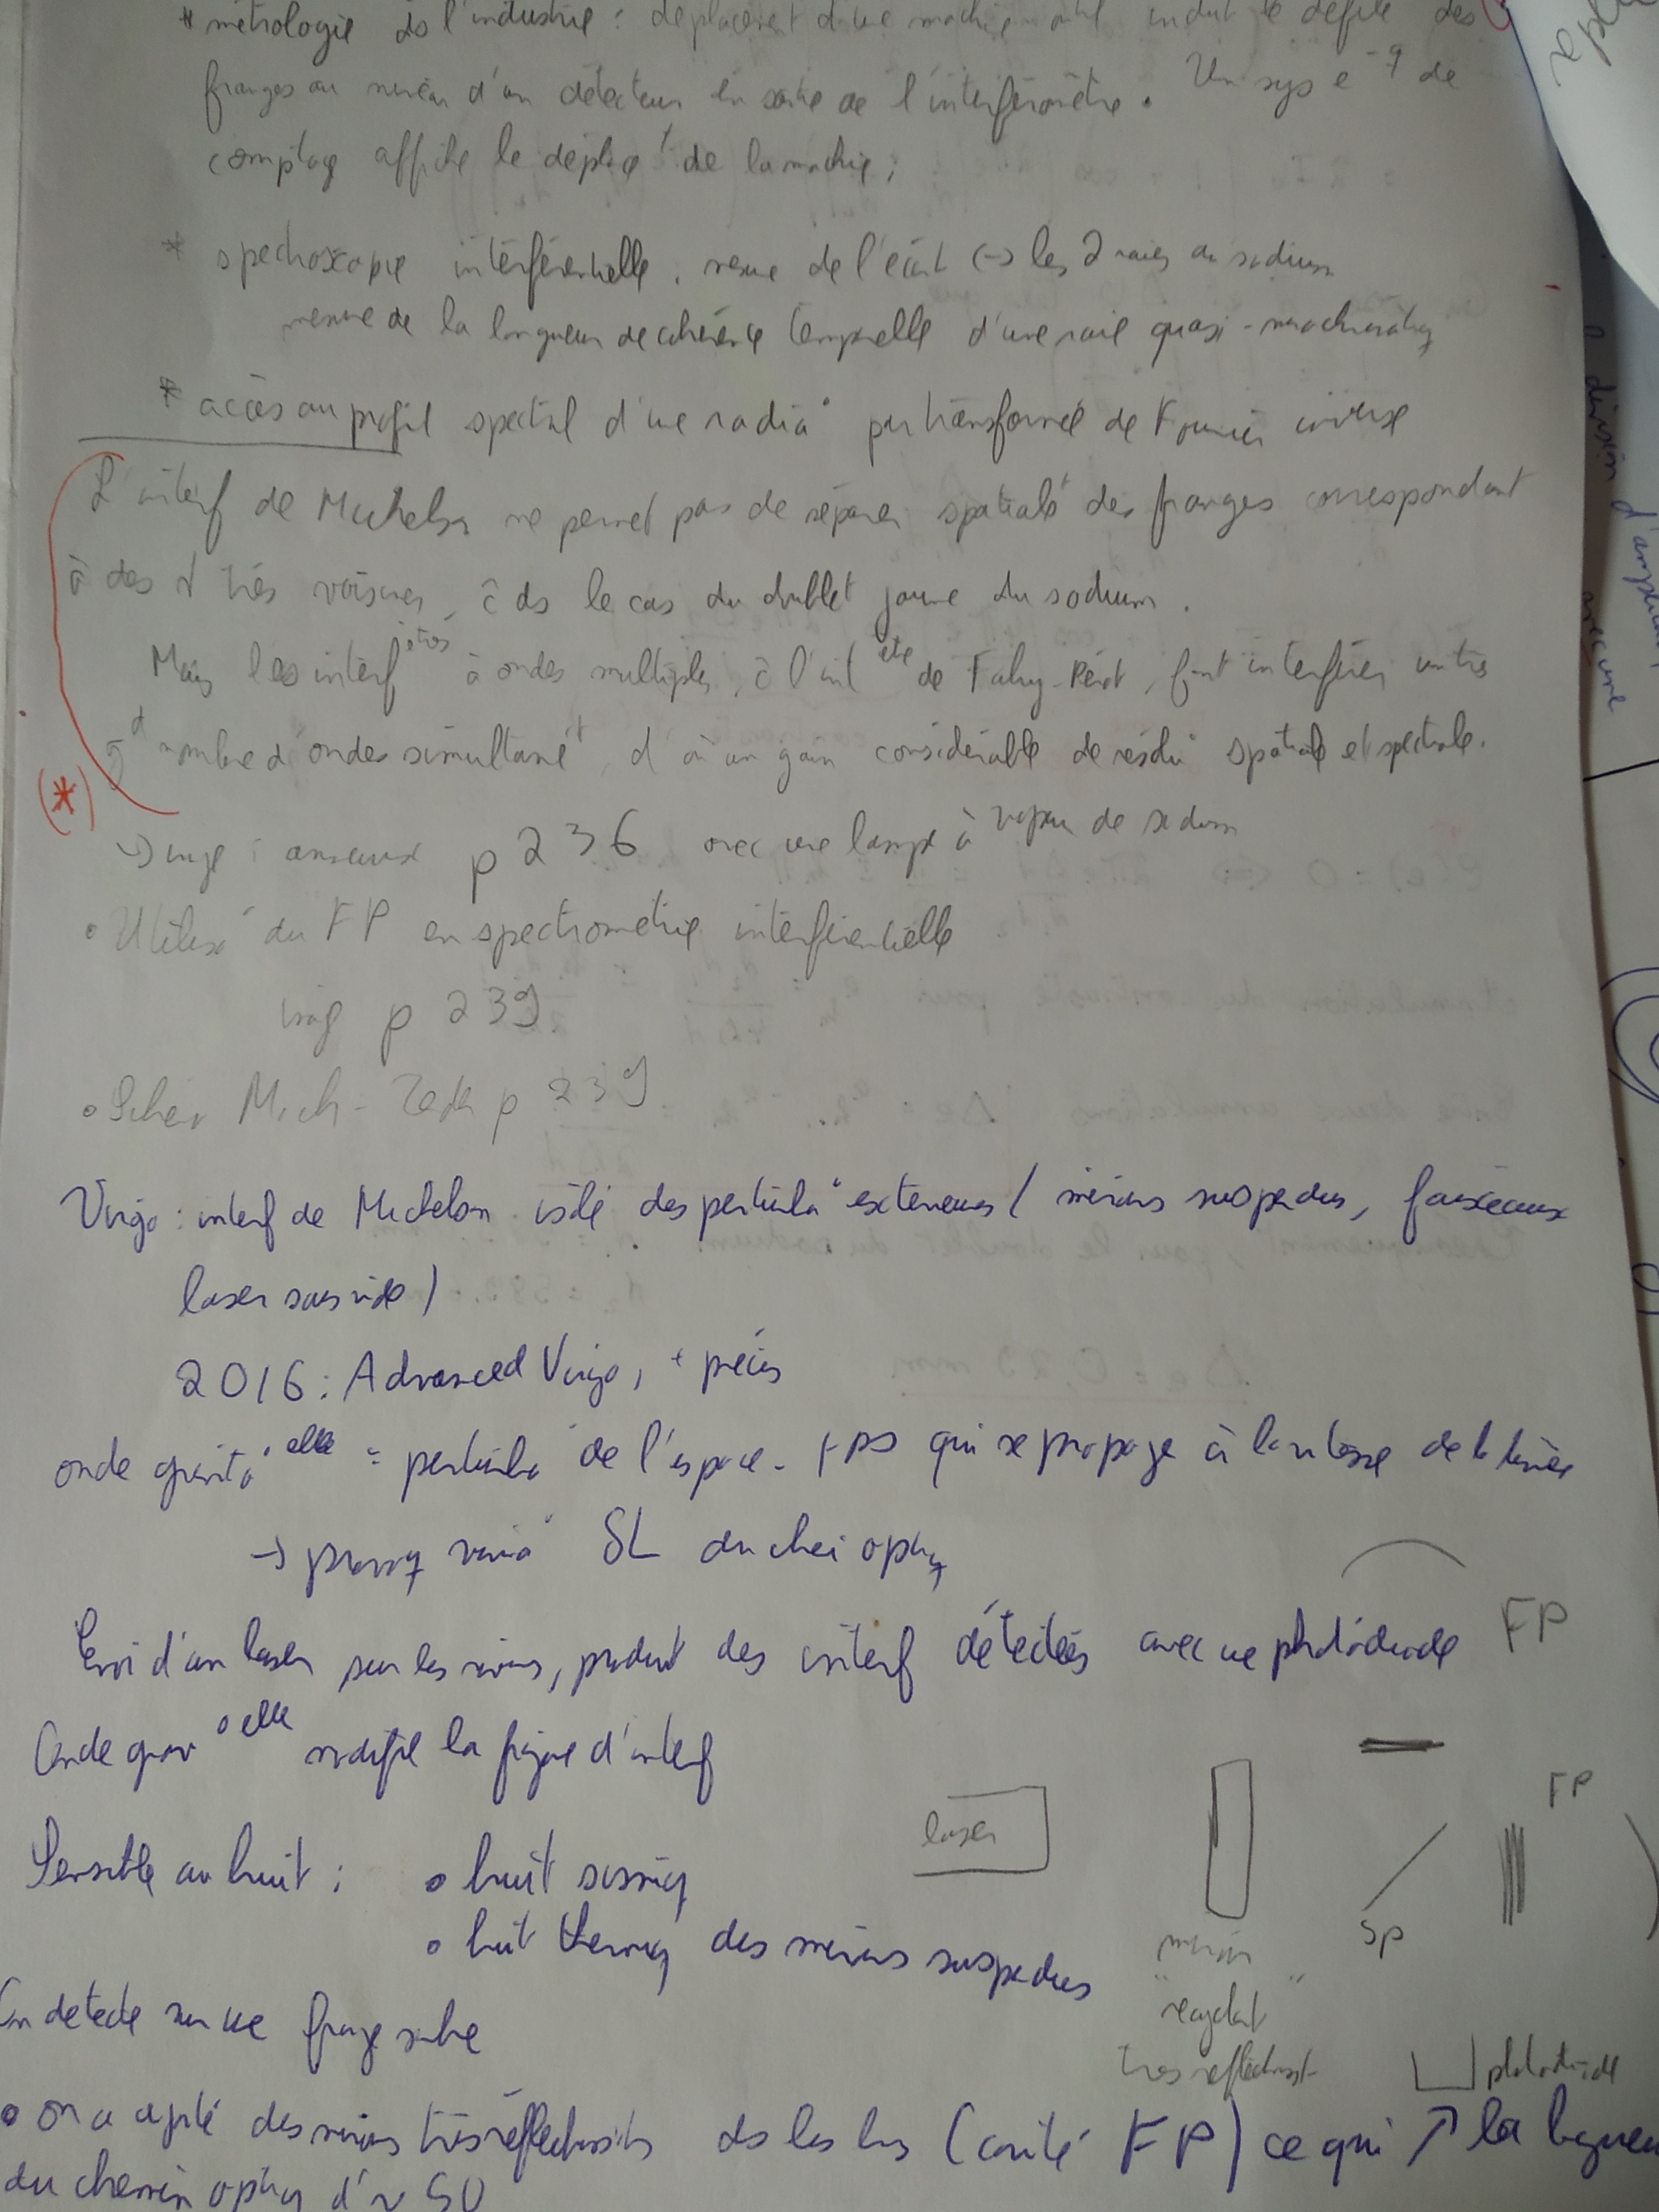 * métrologie ds l'industrie : déplacemt d'une machine outil induit le défilé des
franges au niveau d'un détecteur en sortie de l'interféromètre. Un sys e⁻q de
comptage affiche le déplact de la machine ;
* spectroscopie interférentielle, mesure de l'écart (-> les 2 raies du sodium
mesure de la longueur de cohérence temporelle d'une raie quasi-monochromatiq
* accès au profil spectral d'une radia° par transformée de Fourier inverse
L'interf de Michelson ne permet pas de séparer spatialt des franges correspondant
à des λ très voisines, c ds le cas du doublet jaune du sodium.
Mais les interf ètres à ondes multiples, c l'int ète de Fabry-Pérot, font interférer un très
gd nombre d'ondes simultanét, d'où un gain considérable de résolu° spatiale et spectrale.
(*)
-> image : anneaux p 236 avec une lampe à vapeur de sodium
• Utilisa° du FP en spectrométrie interférentielle
imag p 239.
• Schéma Mach-Zehn p 239
Virgo : interf de Michelson isolé des perturba° extérieures / miroirs suspendus, faisceaux
laser sous vide /
2016 : Advanced Virgo, + précis
onde gravita°elle = perturba° de l'espace-tps qui se propage à la vitesse de la lumière
-> provoq varia° δL du chemin optiq
Envoi d'un laser sur les miroirs, produit des interf détectées avec une photodiode
FP
Onde grav°elle modifie la figure d'interf
laser
FP
Sensible au bruit : • bruit sismiq
• bruit thermiq des miroirs suspendus
SP
miroir
"recyclant"
très réfléchissant
photodiode
On détecte sur une frange sombre
• on a ajouté des miroirs très réfléchissants ds les bras (cavité FP) ce qui ↗ la longueur
du chemin optiq d'un 50